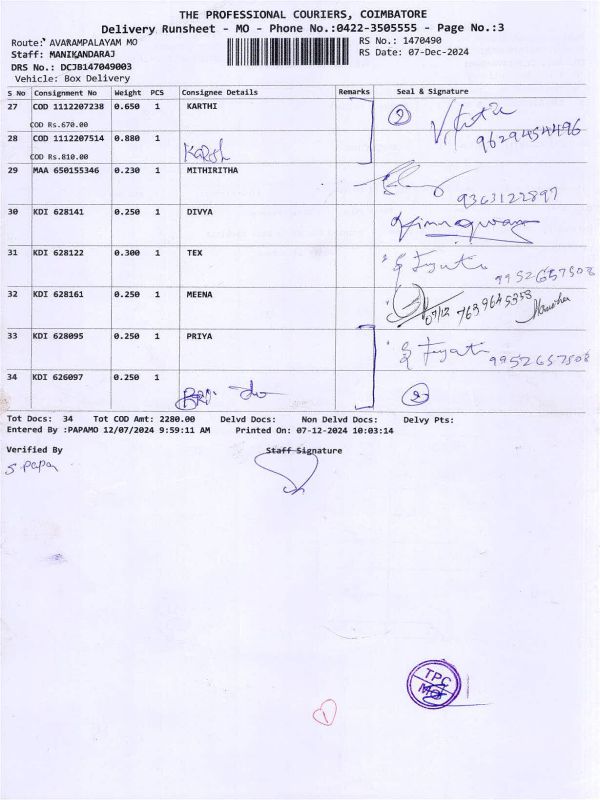 THE PROFESSIONAL COURIERS, COIMBATORE
Delivery Runsheet - MO - Phone No.:0422-3505555 - Page No.:3
Route: AVARAMPALAYAM MO RS No.: 1470490
Staff: MANIKANDARAJ RS Date: 07-Dec-2024
DRS No.: DCJB147049003
Vehicle: Box Delivery
S No Consignment No Weight PCS Consignee Details Remarks Seal & Signature
27 COD 1112207238 0.650 1 KARTHI 2
COD Rs.670.00 9629454496
28 COD 1112207514 0.880 1
COD Rs.810.00
29 MAA 650155346 0.230 1 MITHIRITHA
9363122897
30 KDI 628141 0.250 1 DIVYA
31 KDI 628122 0.300 1 TEX
9952657508
32 KDI 628161 0.250 1 MEENA
07/12 7639645358
33 KDI 628095 0.250 1 PRIYA
9952657508
34 KDI 626097 0.250 1 2
Tot Docs: 34 Tot COD Amt: 2280.00 Delvd Docs: Non Delvd Docs: Delvy Pts:
Entered By :PAPAMO 12/07/2024 9:59:11 AM Printed On: 07-12-2024 10:03:14
Verified By Staff Signature
S. Papa
TPC
MO
1